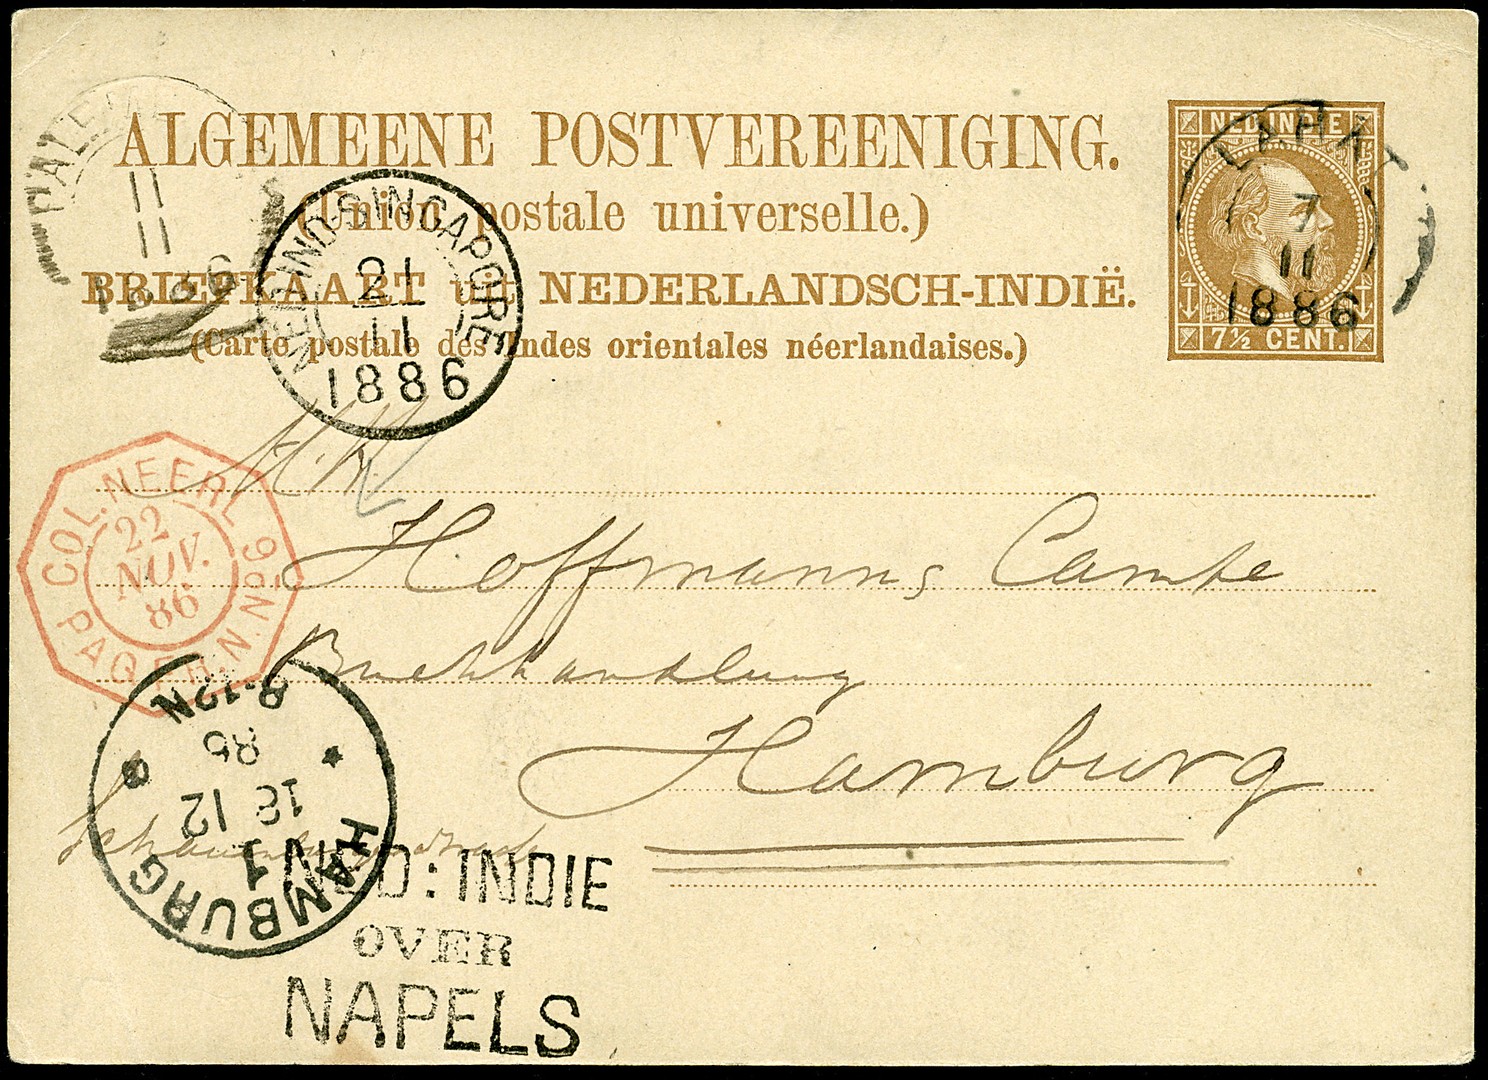 ALGEMEENE POSTVEREENIGING.
(Union postale universelle.)
BRIEFKAART uit NEDERLANDSCH-INDIË.
(Carte postale des Indes orientales néerlandaises.)
NED. INDIE
7½ CENT.
LAHAT
7
11
1886
PALEM
11
11
1886
NED-IND-SINGAPORE
21
11
1886
COL. NEERL
22
NOV.
86
PAQ. FR. N. No 9
Hoffmanns Campe
Buchhandlung
Hamburg
HAMBURG
1
18 12
86
8-12N
NED: INDIE
OVER
NAPELS